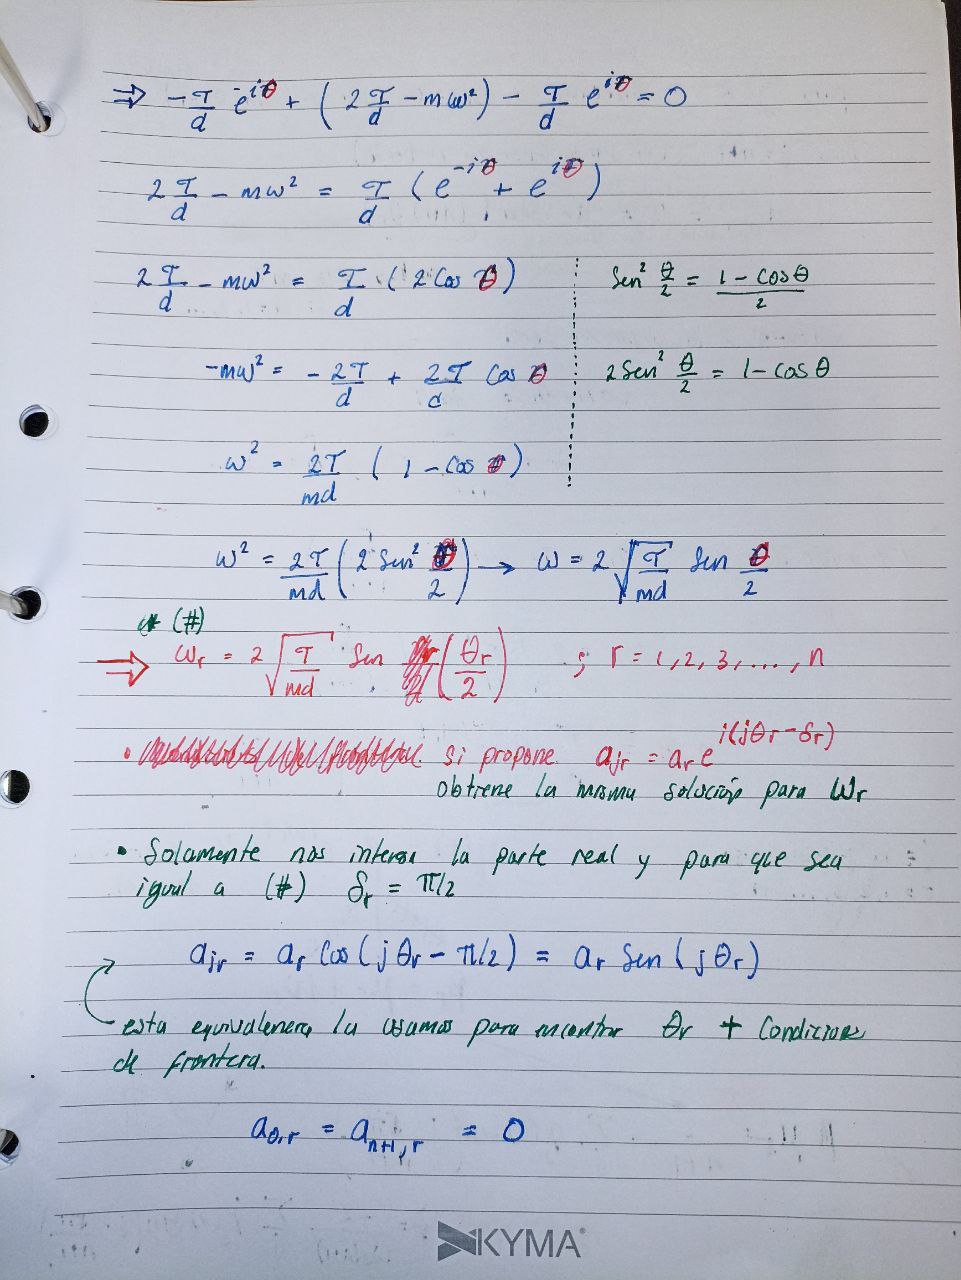 ⇒ -τ/d e^{-iθ} + (2τ/d - mω²) - τ/d e^{iθ} = 0
2τ/d - mω² = τ/d (e^{-iθ} + e^{iθ})
2τ/d - mω² = τ/d (2 Cos θ)
Sen² θ/2 = (1 - cos θ)/2
-mω² = -2τ/d + 2τ/d Cos θ
2 Sen² θ/2 = 1 - cos θ
ω² = 2τ/md (1 - Cos θ)
ω² = 2τ/md (2 Sen² θ/2) → ω = 2 √(τ/md) Sen θ/2
(#)
⇒ ω_r = 2 √(τ/md) Sen (θ_r/2) ; r = 1, 2, 3, ..., n
• si propone a_{jr} = a_r e^{i(jθ_r - δ_r)}
obtiene la misma solución para ω_r
• Solamente nos interesa la parte real y para que sea
igual a (#) δ_r = π/2
a_{jr} = a_r Cos (jθ_r - π/2) = a_r Sen (jθ_r)
esta equivalencia la usamos para encontrar θ_r + Condiciones
de frontera.
a_{0,r} = a_{n+1,r} = 0
KYMA